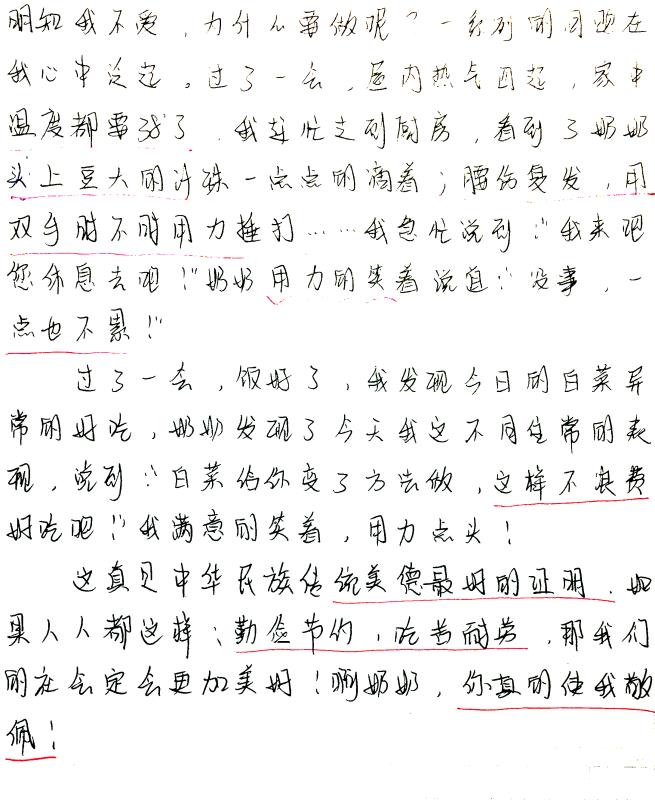 明知我不爱，为什么要做呢？一系列的问题在
我心中泛起。过了一会，屋内热气四起，家中
温度都要38了，我赶忙走到厨房，看到了奶奶
头上豆大的汗珠一点点的滴着；腰伤复发，用
双手时不时用力捶打……我急忙说到：“我来吧
您休息去吧！”奶奶用力的笑着说道：“没事，一
点也不累！”
过了一会，饭好了，我发现今日的白菜异
常的好吃，奶奶发现了今天我这不同往常的表
现，说到：“白菜给你变了方法做，这样不浪费
好吃吧！”我满意的笑着，用力点头！
这真是中华民族传统美德最好的证明，如
果人人都这样：勤俭节约，吃苦耐劳，那我们
的社会定会更加美好！啊奶奶，你真的使我敬
佩！